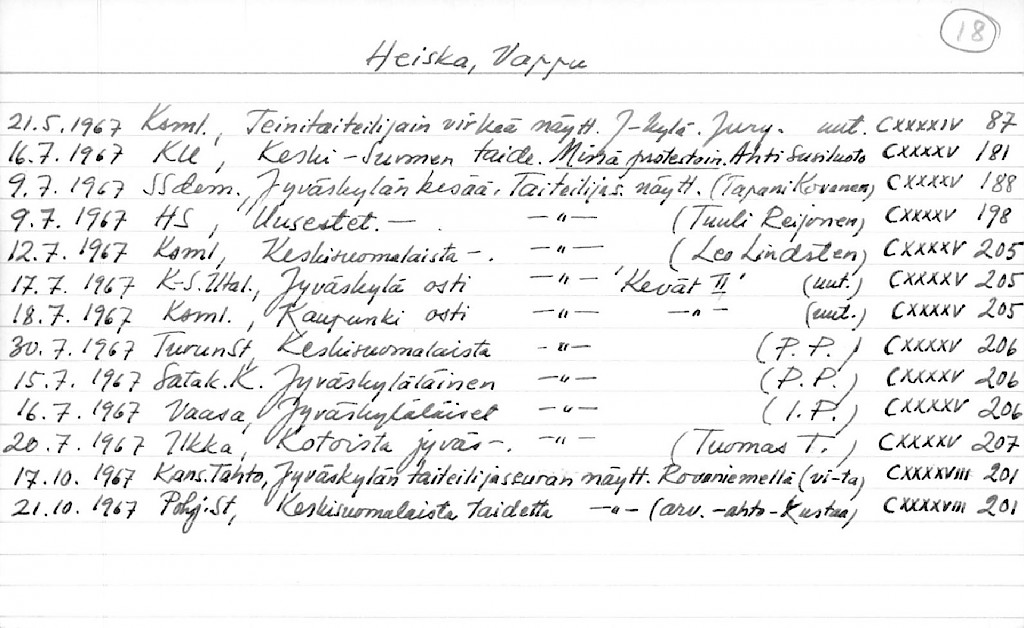 18
Heiska, Vappu
21.5.1967 Ksml., Teinitaiteilijain virkeä näytt. J-kylä. Jury. uut. CXXXXIV 87
16.7.1967 KU, Keski-Suomen taide. Minä protestoin. Ahti Susiluoto CXXXXV 181
9.7.1967 SSdem., Jyväskylän kesää. Taiteilijas. näytt. (Tapani Kovanen) CXXXXV 188
9.7.1967 HS, Uusestet. — —"— (Tuuli Reijonen) CXXXXV 198
12.7.1967 Ksml, Keskisuomalaista -. —"— (Leo Lindsten) CXXXXV 205
17.7.1967 K-S.Iltal., Jyväskylä osti —"— 'Kevät II' (uut.) CXXXXV 205
18.7.1967 Ksml., Kaupunki osti —"— —"— (uut.) CXXXXV 205
30.7.1967 TurunSt, Keskisuomalaista —"— (P.P.) CXXXXV 206
15.7.1967 Satak.K. Jyväskyläläinen —"— (P.P.) CXXXXV 206
16.7.1967 Vaasa, Jyväskyläläiset —"— (I.P.) CXXXXV 206
20.7.1967 Ilkka, Kotoista jyväs-. —"— (Tuomas T.) CXXXXV 207
17.10.1967 Kans.Tahto, Jyväskylän taiteilijaseuran näytt. Rovaniemellä (vi-ta) CXXXXVIII 201
21.10.1967 Pohj.St, Keskisuomalaista taidetta —"— (arv. -ahto-Kustaa) CXXXXVIII 201